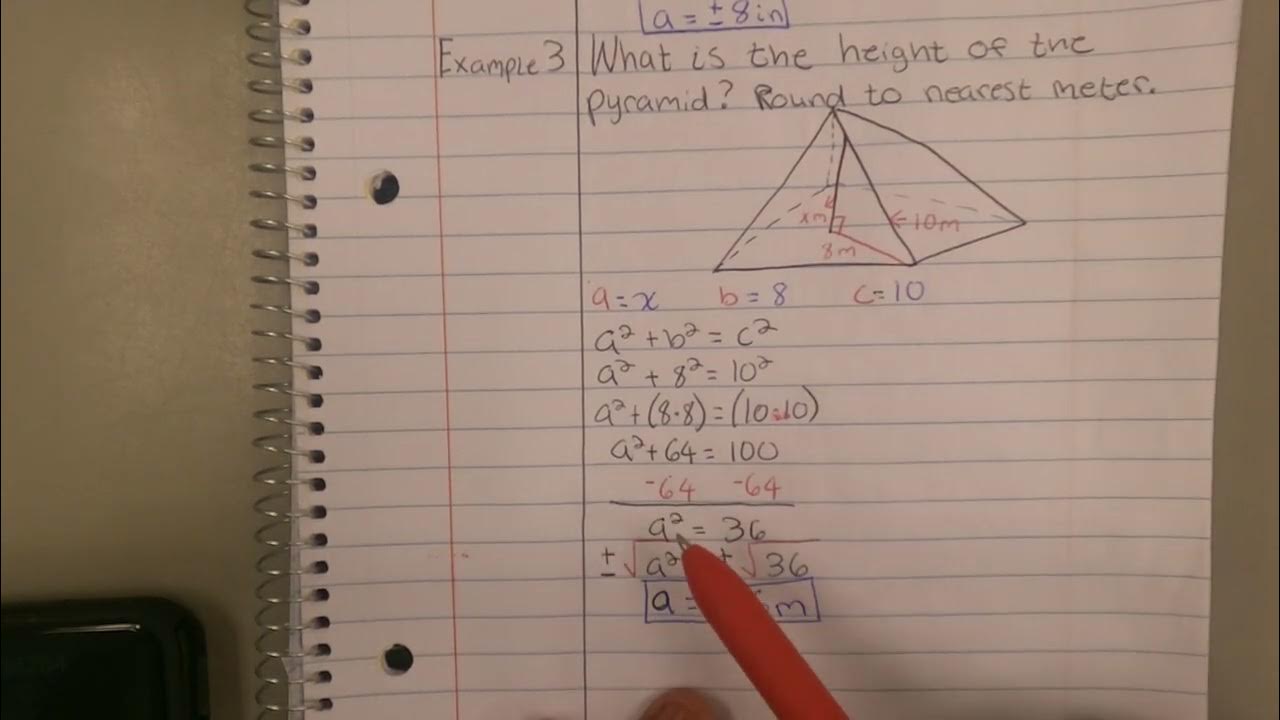 a = ± 8 in
Example 3
What is the height of the
pyramid? Round to nearest meter.
x m
← 10 m
8 m
a = x b = 8 c = 10
a² + b² = c²
a² + 8² = 10²
a² + (8·8) = (10·10)
a² + 64 = 100
-64 -64
a² = 36
± √a² ± √36
a = m